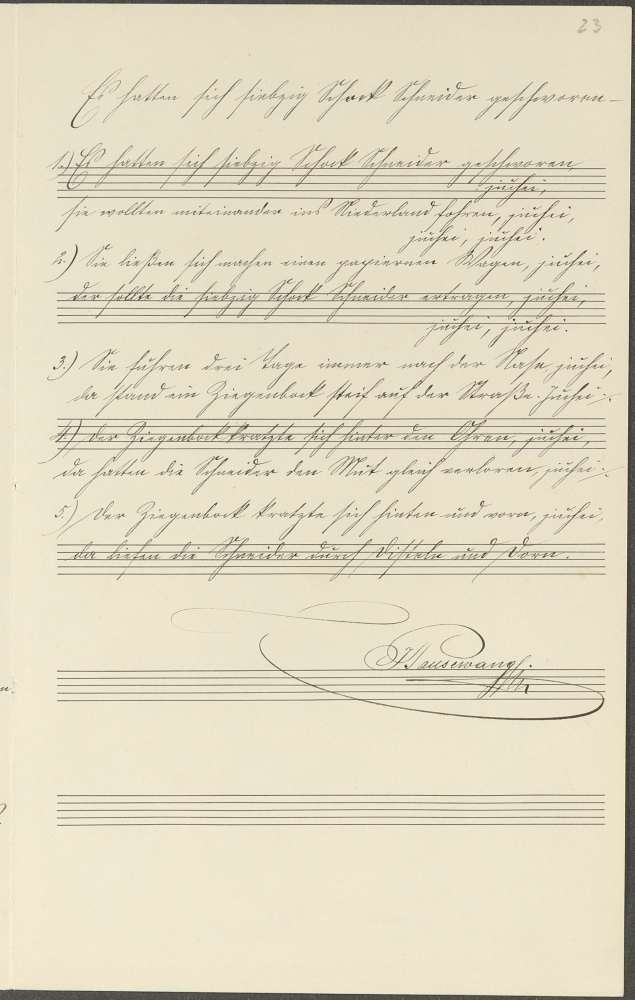 23
Es hatten sich siebzig Schock Schneider geschworen –
1.) Es hatten sich siebzig Schock Schneider geschworen,
juchei,
sie wollten miteinander ins Niederland fahren, juchei,
juchei, juchei.
2.) Sie ließen sich machen einen papiernen Wagen, juchei,
der sollte die siebzig Schock Schneider ertragen, juchei,
juchei, juchei.
3.) Sie fuhren drei Tage immer nach der Nase, juchei,
da stand ein Ziegenbock steif auf der Straße. Juchei
4.) Der Ziegenbock kratzte sich hinter den Ohren, juchei,
da hatten die Schneider den Mut gleich verloren, juchei
5.) Der Ziegenbock kratzte sich hinten und vorn, juchei,
da liefen die Schneider durch Disteln und Dorn.
Pausewang